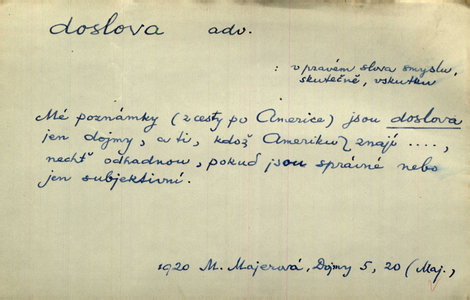 doslova adv.
: v pravém slova smyslu,
skutečně, vskutku
Mé poznámky (z cesty po Americe) jsou doslova
jen dojmy, a ti, kdož Ameriku znají ....,
nechť odhadnou, pokud jsou správné nebo
jen subjektivní.
1920 M. Majerová, Dojmy 5, 20 (Maj.)